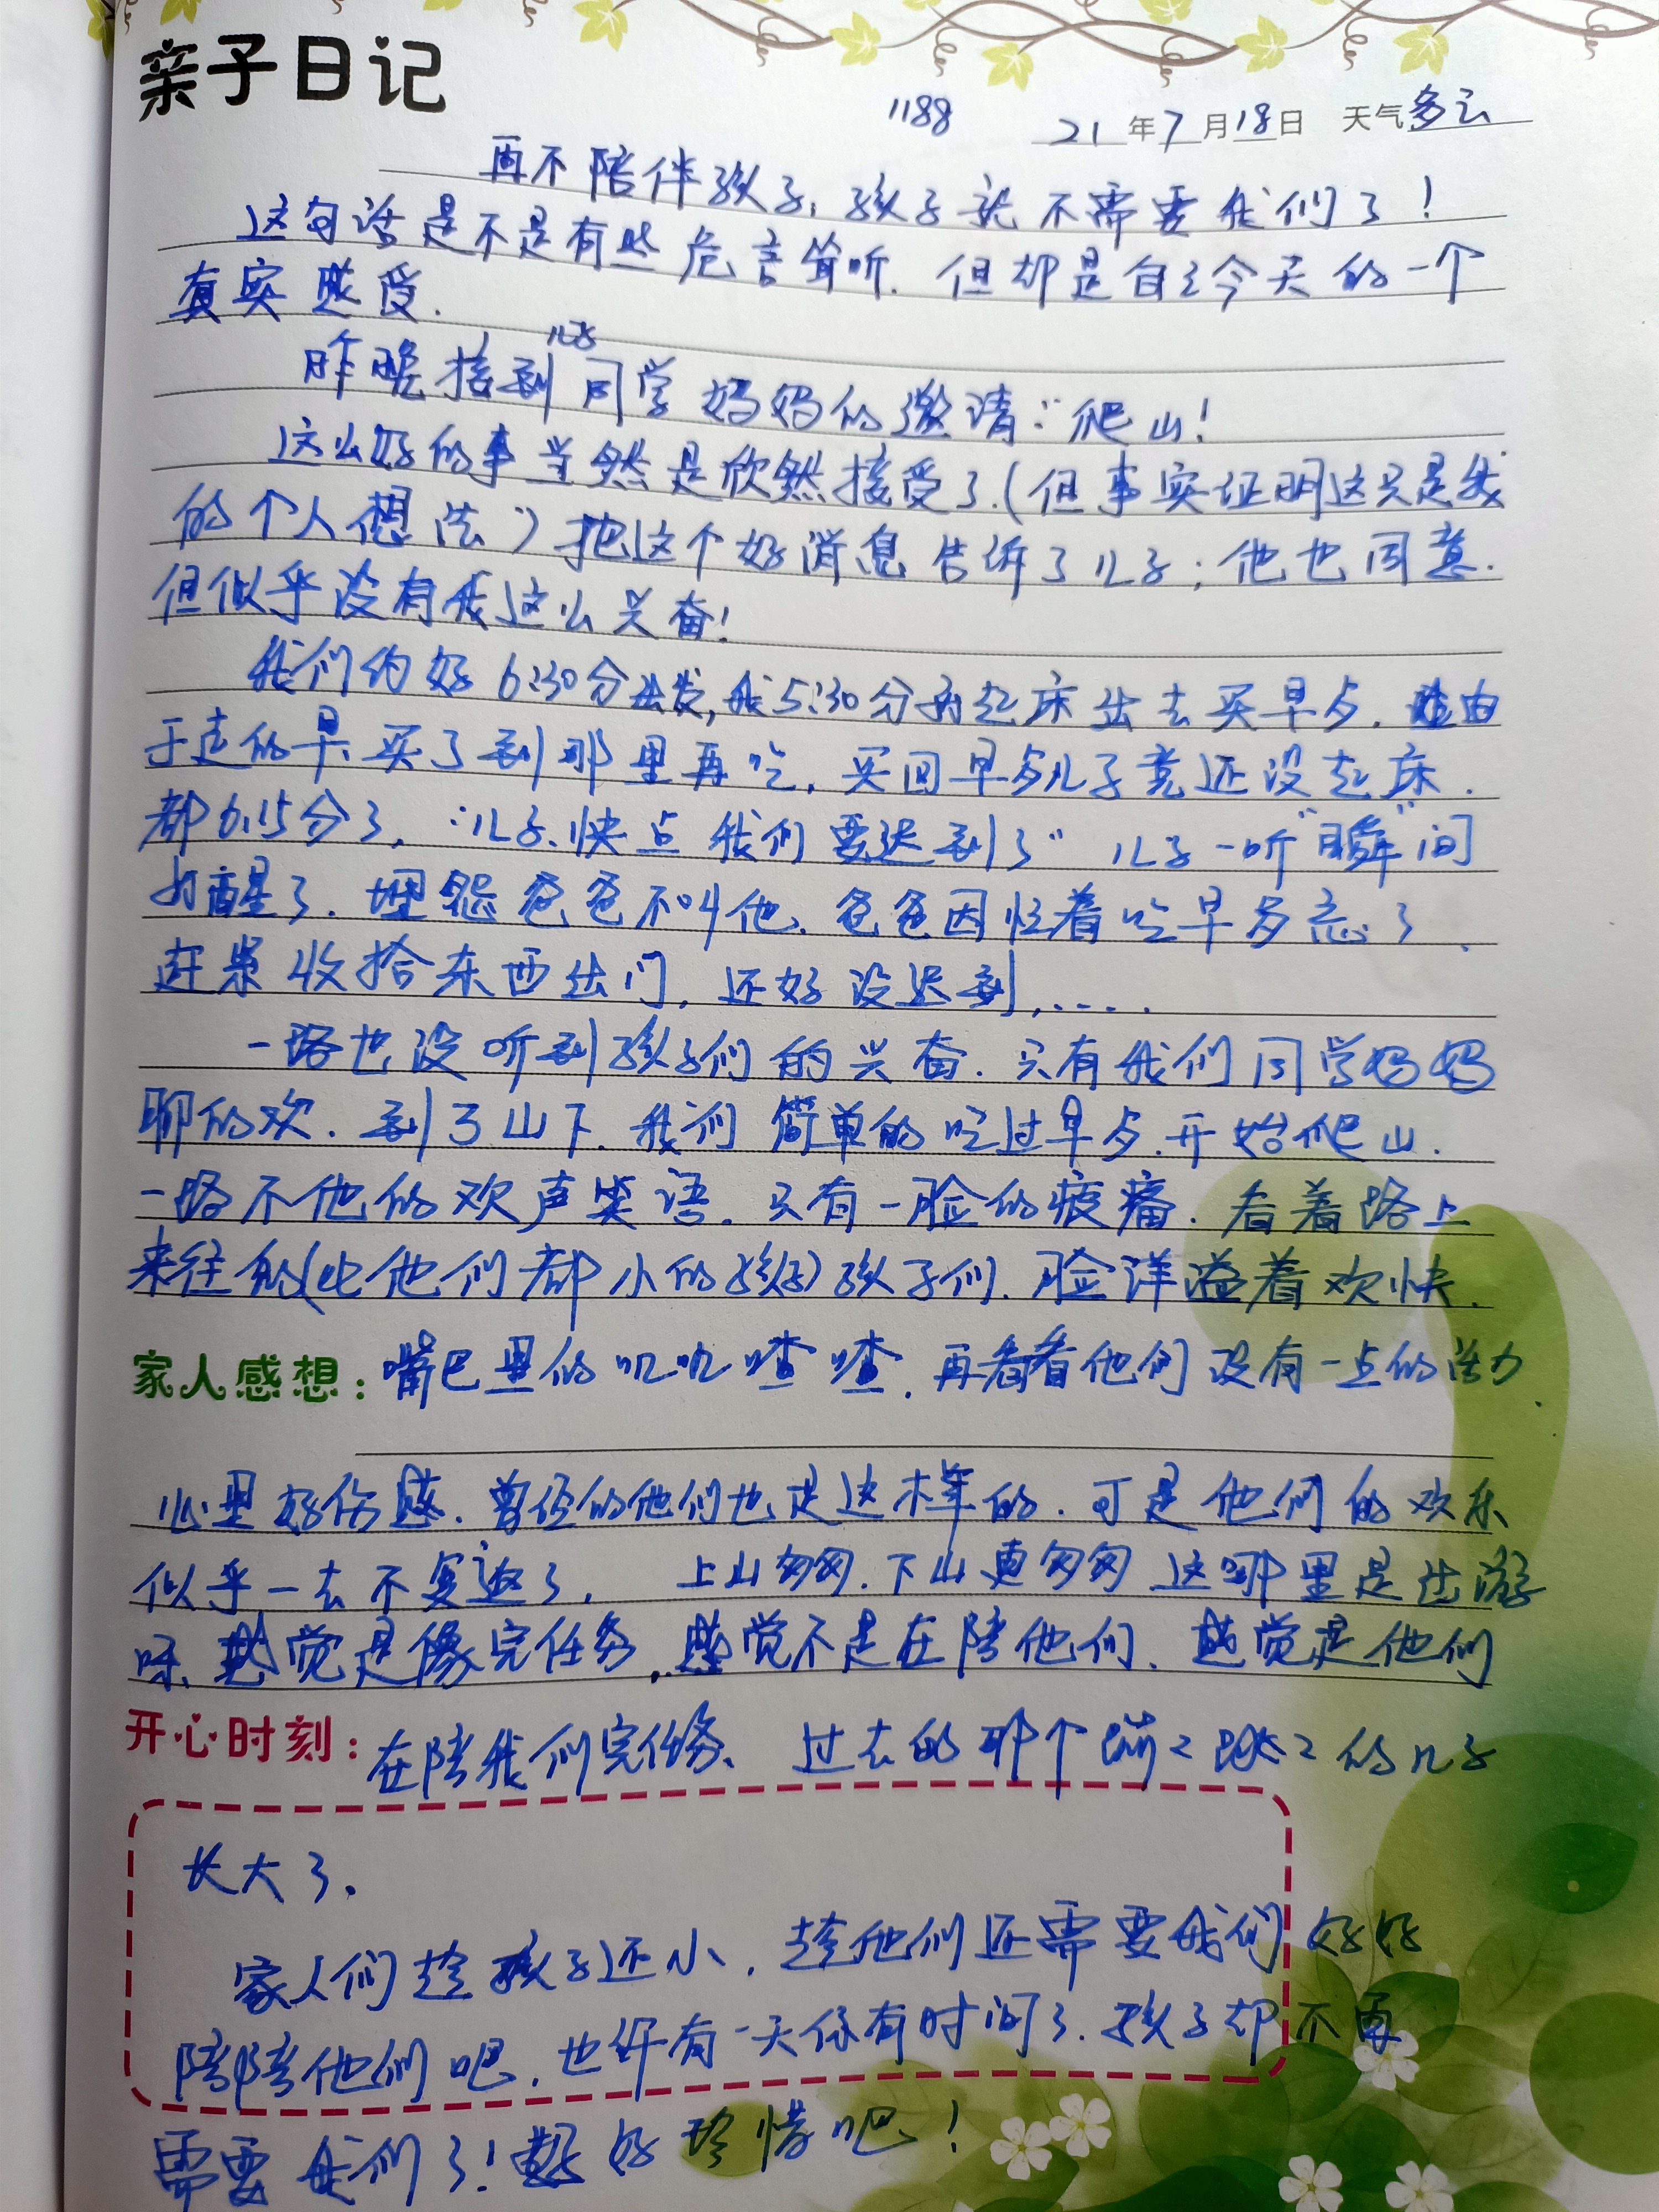 亲子日记
1188 21年7月18日 天气多云
再不陪伴孩子,孩子就不需要我们了!
这句话是不是有些危言耸听.但却是自己今天的一个
真实感受.
昨晚接到儿子同学妈妈的邀请:"爬山!
这么好的事当然是欣然接受了.(但事实证明这只是我
的个人想法)把这个好消息告诉了儿子;他也同意.
但似乎没有我这么兴奋!
我们约好6:30分出发,我5:30分就起床出去买早点.由
于走的早、买了到那里再吃,买回早点儿子竟还没起床.
都6:15分了,"儿子、快点我们要迟到了"儿子一听"瞬"间
就醒了.埋怨爸爸不叫他、爸爸因忙着吃早点忘了、
赶紧收拾东西出门,还好没迟到,.....
一路也没听到孩子们的兴奋.只有我们同学妈妈
聊的欢.到了山下.我们简单的吃过早点.开始爬山.
一路不他的欢声笑语.只有一脸的疲痛.看着路上
来往的(比他们都小的孩子)孩子们.脸洋溢着欢快.
家人感想:嘴巴里的叽叽喳喳.再看看他们没有一点的活力.
心里好伤感.曾经的他们也是这样的.可是他们的欢乐
似乎一去不复返了, 上山匆匆.下山更匆匆 这哪里是出游
呀、感觉是像完任务,感觉不是在陪他们、感觉是他们
开心时刻:在陪我们完任务、过去的那个蹦2跳2的儿子
长大了.
家人们趁孩子还小.趁他们还需要我们好好
陪陪他们吧.也许有一天你有时间了.孩子却不再
需要我们了!好好珍惜吧!